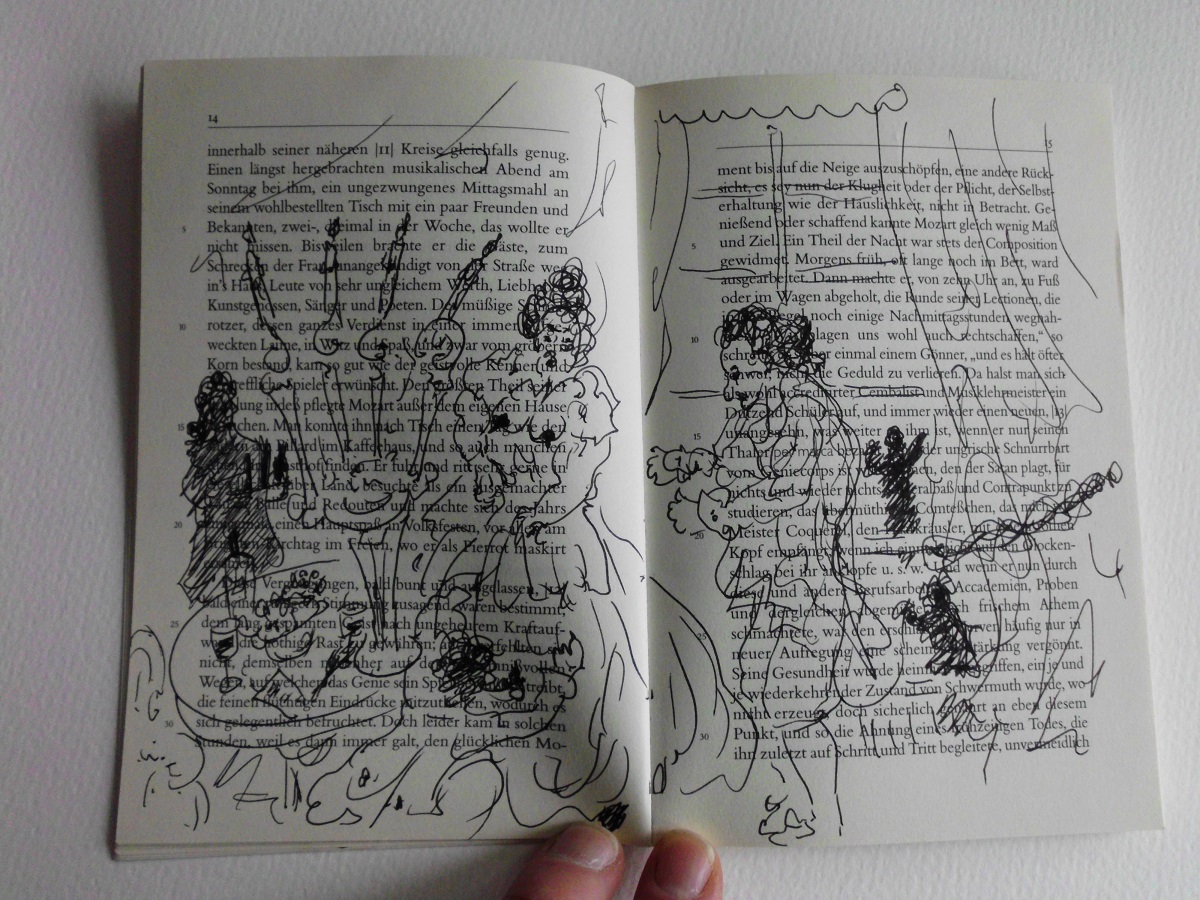 14
innerhalb seiner näheren |11| Kreise gleichfalls genug.
Einen längst hergebrachten musikalischen Abend am
Sonntag bei ihm, ein ungezwungenes Mittagsmahl an
seinem wohlbestellten Tisch mit ein paar Freunden und
5 Bekannten, zwei-, dreimal in der Woche, das wollte er
nicht missen. Bisweilen brachte er die Gäste, zum
Schrecken der Frau, unangekündigt von der Straße weg
in's Haus, Leute von sehr ungleichem Werth, Liebhaber,
Kunstgenossen, Sänger und Poeten. Der müßige
10 rotzer, dessen ganzes Verdienst in einer immer
weckten Laune, in Witz und Spaß, und zwar vom gröbern
Korn bestund, kam so gut wie der geistvolle Kenner und
treffliche Spieler erwünscht. Den größten Theil seiner
indes pflegte Mozart außer dem eigenen Hause
15 suchen. Man konnte ihn nach Tisch einen Tag wie den
am Billard im Kaffeehaus, und so auch manchen
Gasthof finden. Er fuhr und ritt sehr gerne in
über Land, besuchte als ein ausgemachter
Bälle und Redouten und machte sich des Jahrs
20 einen Hauptspaß an Volksfesten, vor allen am
Kirchtag im Freien, wo er als Pierrot maskirt
Diese Vergnügungen, bald bunt und ausgelassen, bald
einer Stimmung zusagend, waren bestimmt,
25 dem lang gespannten Geist nach ungeheurem Kraftauf-
wand die nöthige Rast zu gewähren;
nicht, demselben nebenher auf den
Wegen, auf welchen das Genie sein Spiel treibt,
die feinen flüchtigen Eindrücke mitzutheilen, wodurch es
30 sich gelegentlich befruchtet. Doch leider kam in solchen
Stunden, weil es dann immer galt, den glücklichen Mo-
15
ment bis auf die Neige auszuschöpfen, eine andere Rück-
sicht, es sey nun der Klugheit oder der Pflicht, der Selbst-
erhaltung wie der Häuslichkeit, nicht in Betracht. Ge-
nießend oder schaffend kannte Mozart gleich wenig Maß
5 und Ziel. Ein Theil der Nacht war stets der Composition
gewidmet. Morgens früh, oft lange noch im Bett, ward
ausgearbeitet. Dann machte er, von zehn Uhr an, zu Fuß
oder im Wagen abgeholt, die Runde seiner Lectionen, die
in der Regel noch einige Nachmittagsstunden wegnah-
10 plagen uns wohl auch rechtschaffen,“ so
schreibt er selber einmal einem Gönner, „und es hält öfter
schwer, nicht die Geduld zu verlieren. Da halst man sich
als wohl accreditirter Cembalist und Musiklehrmeister ein
Dutzend Schüler auf, und immer wieder einen neuen, |13|
15 unangesehn, was weiter an ihm ist, wenn er nur seinen
Thaler per marca bezahlt. der ungrische Schnurrbart
vom Geniecorps ist den der Satan plagt, für
nichts und wieder nichts Generalbaß und Contrapunkt zu
studieren, das übermüthige Comteßchen, das mich
20 Meister Coquerel, den Haarkräusler, mit
Kopf empfängt, wenn ich auf den Glocken-
schlag bei ihr anklopfe u. s. w. Und wenn er nun durch
diese und andere Berufsarbeiten, Accademien, Proben
und dergleichen abgemüdet, nach frischem Athem
25 schmachtete, war den erschlafften Nerven häufig nur in
neuer Aufregung eine scheinbare Stärkung vergönnt.
Seine Gesundheit wurde heimlich angegriffen, ein je und
je wiederkehrender Zustand von Schwermuth wurde, wo
nicht erzeugt, doch sicherlich genährt an eben diesem
30 Punkt, und so die Ahnung eines frühzeitigen Todes, die
ihn zuletzt auf Schritt und Tritt begleitete, unvermeidlich